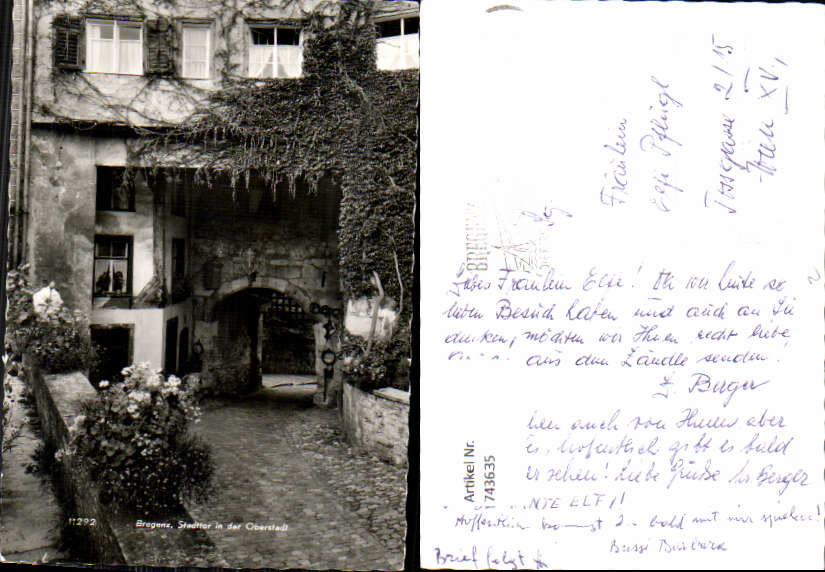 11292
Bregenz, Stadttor in der Oberstadt
BREGENZ
Fräulein
Pflügl
2/15
XV,
Artikel Nr.
1743635
Liebes Fräulein Else! Da wir heute so
lieben Besuch haben und auch an Sie
denken, möchten wir Ihnen recht liebe
aus dem Ländle senden!
Berger
auch von Ihnen aber
hoffentlich gibt es bald
sehen! Liebe Grüße Berger
TANTE ELFI!
Hoffentlich kommst 2. bald mit mir spielen!
Bussi Barbara
Brief folgt